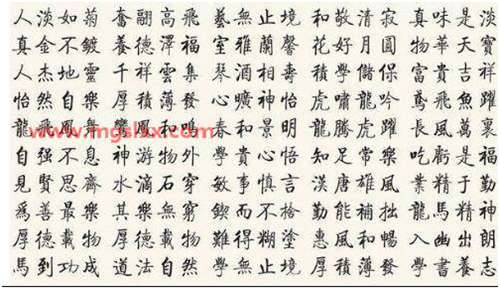 人淡如菊 奮翮高飛 藝無止境 和敬清寂 真味是淡
真金不鍍 養德澤福 室雅蘭馨 花好月圓 物華天寶
人杰地靈 千祥雲集 琴酒相壽 學儲 富貴吉祥
怡然自樂 厚積薄發 心曠神怡 虎嘯龍吟 鳶飛魚躍
龍飛鳳舞 和鳴 春和景明 龍騰虎躍 長風萬里
www.mgslsx.com
自強不息 神游物外 知足常樂 吃虧是福
見賢思齊 水滴石穿 敏事慎言 漢唐雄風 業精于勤
爲善最樂 其樂無窮 鍥而不捨 勤能補拙 龍馬精神
厚德載物 難得糊塗 惠風和暢 入幽出朗
馬到功成 道法自然 學無止境 厚積薄發 學書養志